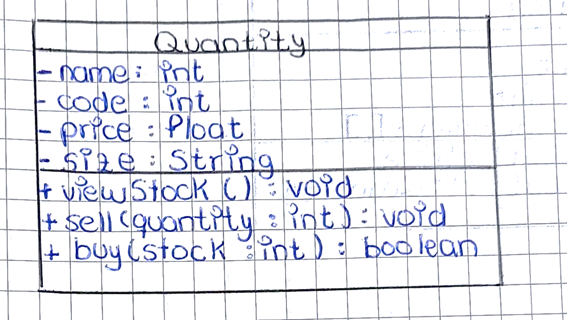 Quantity
- name : int
- code : int
- price : Float
- size : String
+ viewStock () : void
+ sell(quantity : int) : void
+ buy(stock : int) : boolean